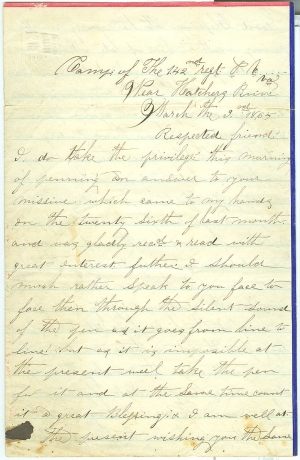 Camp of The 142nd regt P. V.
Near Hatchers Run Va
March the 2nd 1865
Respected friend.
I do take the privilege this morning
of penning an answer to your
missive which came to my hands
on the twenty sixth of last month
and was gladly recd & read with
great interest futher. I should
much rather speak to you face to
face then through the silent sound
of the pen as it goes from line to
line but as it is imposible at
the present well take the pen
for it and at the same time count
it a great Blessing & I am well at
the present wishing you the same